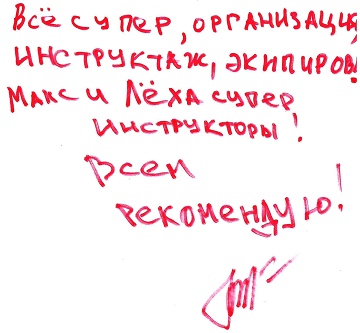 Всё супер, организация,
инструктаж, экипиров
Макс и Лёха супер
инструкторы!
Всем
рекомендую!